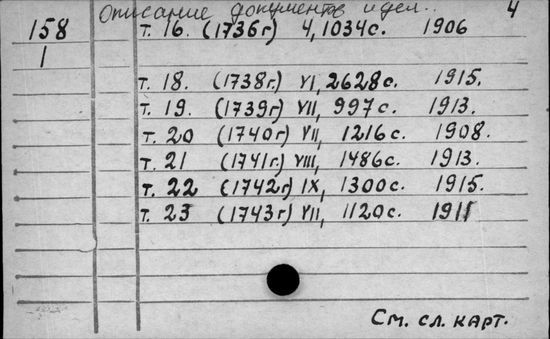 Описание документов и дел.. 4
158 т. 16. (1736г) 4, 1034с. 1906
1
т. 18. (1738г.) VI, 2628с. 1915.
т. 19. (1739г) VII, 997с. 1913.
т. 20 (1740г) VII, 1216с. 1908.
т. 21 (1741г.) VIII, 1486с. 1913.
т. 22 (1742г) IX, 1300с. 1915.
т. 23 (1743г) VII, 1120с. 1911
См. сл. карт.